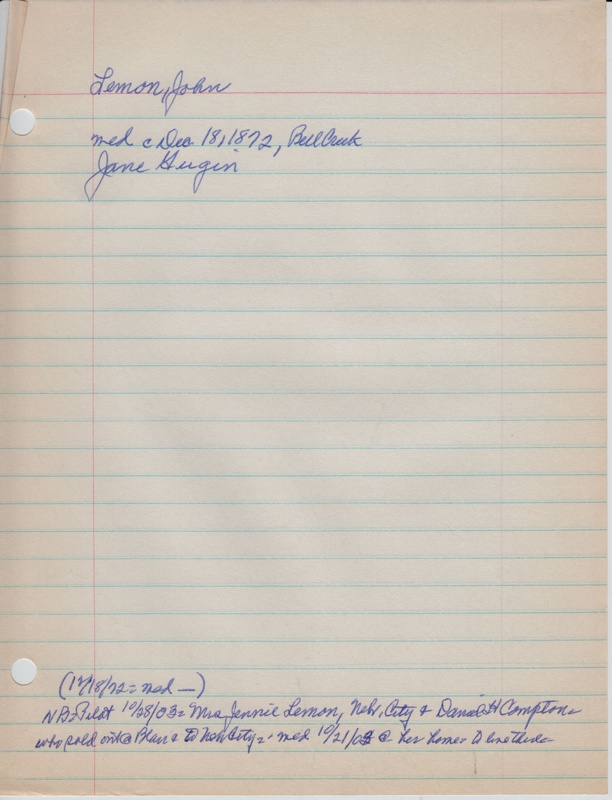 Lemon, John
med c Dec 18, 1872, Bell Creek
Jane Gugin
(12/18/72 = med —)
NB = Pilot 10/28/03 = Mrs Jennie Lemon, Nebr. City & Daniel H Compton =
who sold out @ Blair & to Neb City = med 10/21/03 @ her home = to live there =